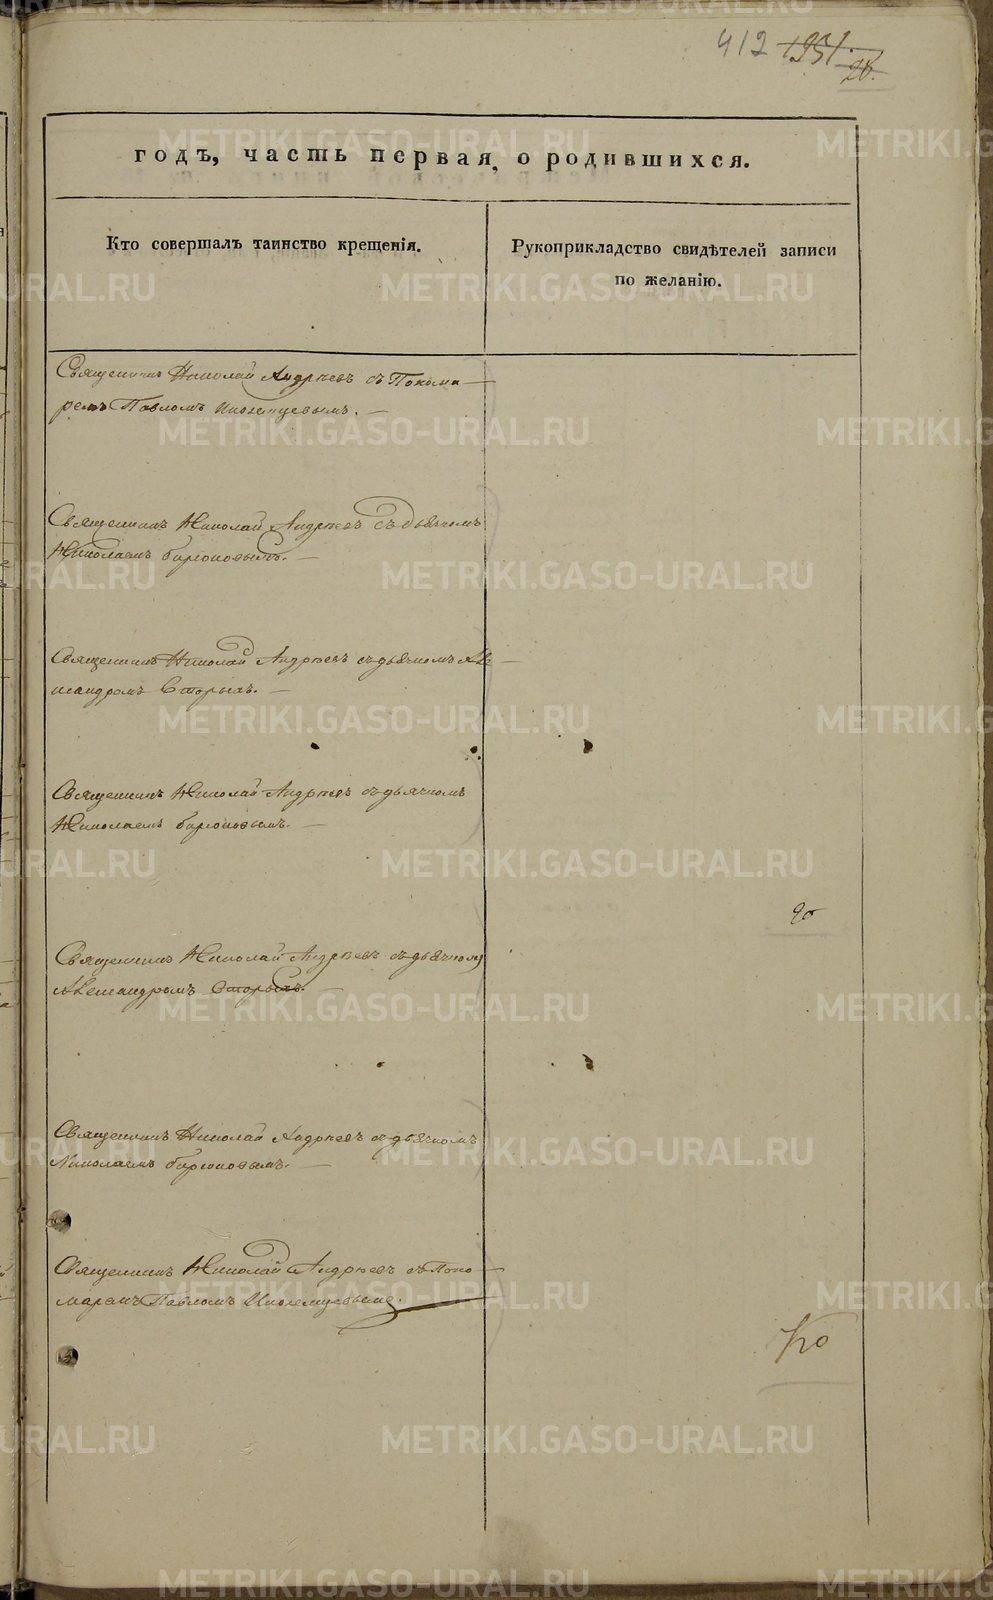 412 1251.
26.
годъ, часть первая, о родившихся.
Кто совершалъ таинство крещенія.
Рукоприкладство свидѣтелей записи
по желанію.
Священникъ Николай Андреевъ съ Понома-
ремъ Павломъ Иноземцевымъ.
Священникъ Николай Андреевъ съ дьячкомъ
Николаемъ Бирюковымъ.
Священникъ Николай Андреевъ съ дьячкомъ Але-
ксандромъ Вторыхъ.
Священникъ Николай Андреевъ съ дьячкомъ
Николаемъ Бирюковымъ.
Священникъ Николай Андреевъ съ дьячкомъ
Александромъ Вторыхъ.
Священникъ Николай Андреевъ съ дьячкомъ
Николаемъ Бирюковымъ.
Священникъ Николай Андреевъ съ Поно-
маремъ Павломъ Иноземцевымъ.
METRIKI.GASO-URAL.RU